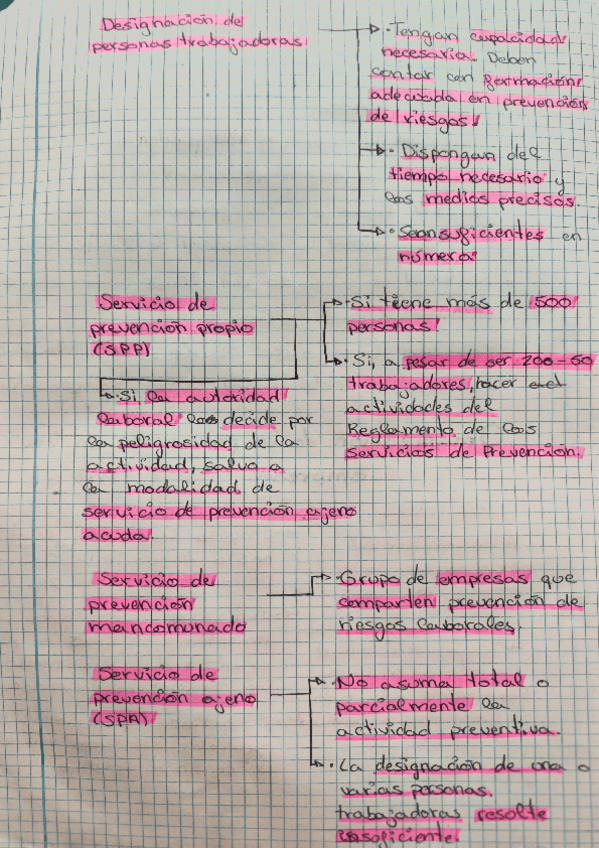 Designación de
personas trabajadoras
· Tengan capacidad
necesaria. Deben
contar con formación
adecuada en prevención
de riesgos
· Dispongan del
tiempo necesario y
los medios precisos.
· Sean suficientes en
número
Servicio de
prevención propio
(SPP)
· Si tiene más de 500
personas
· Si, a pesar de ser 200-50
trabajadores, hacer act
actividades del
Reglamento de los
Servicios de Prevención.
· Si la autoridad
laboral los decide por
la peligrosidad de la
actividad, salvo a
la modalidad de
servicio de prevención ajeno
acuda.
Servicio de
prevención
mancomunado
· Grupo de empresas que
comparten prevención de
riesgos laborales.
Servicio de
prevención ajeno
(SPA)
· No asuma total o
parcialmente la
actividad preventiva.
· La designación de una o
varias personas.
trabajadoras resolte
insoficiente.